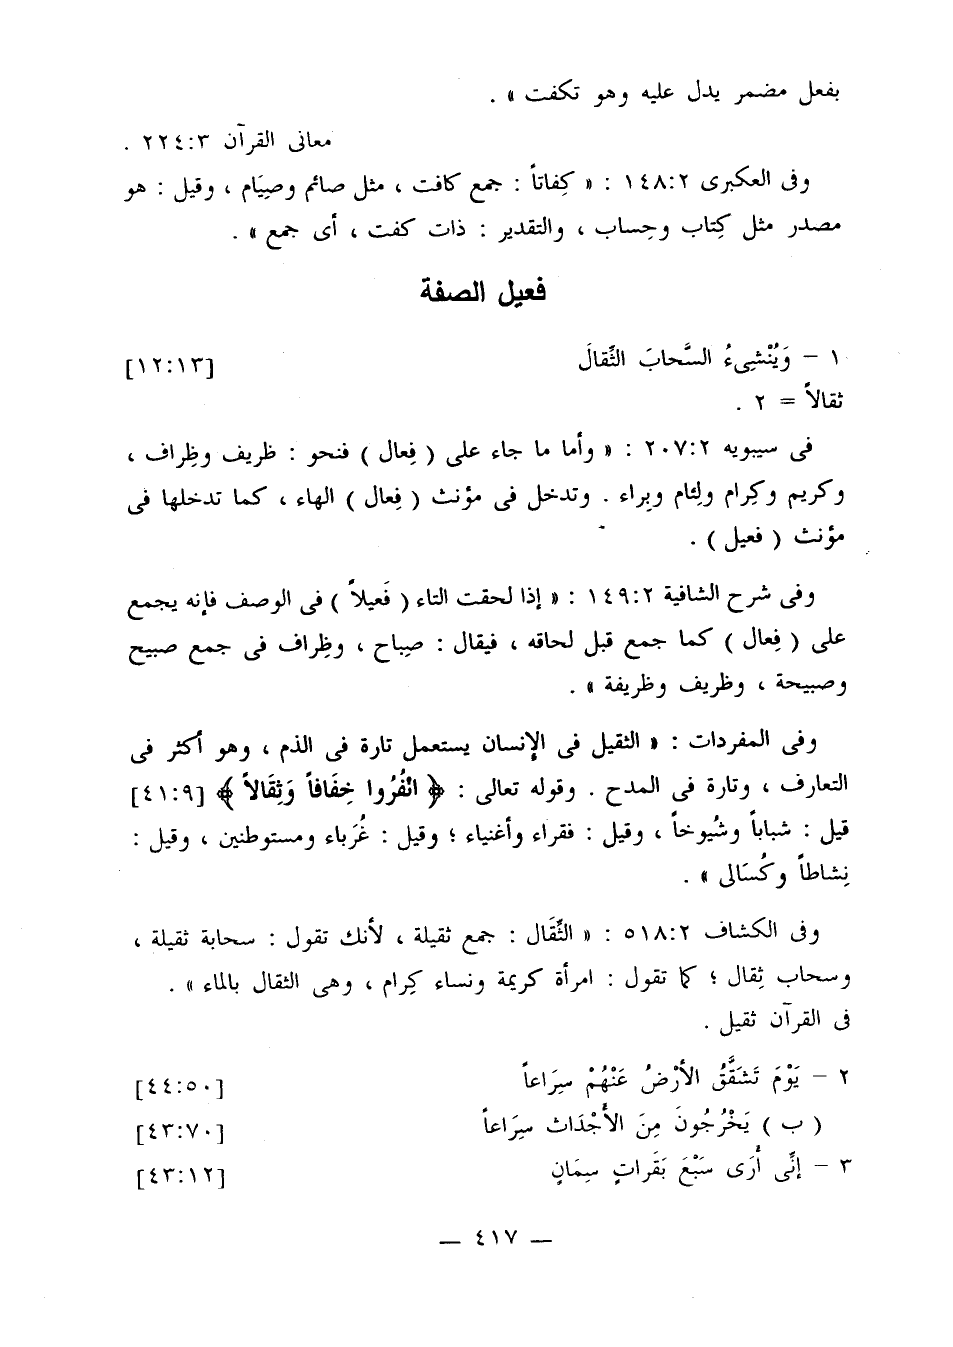 بفعل مضمر يدل عليه وهو تكفت » .
معانى القرآن ٢٢٤:٣ .
وفى العكبرى ١٤٨:٢ : « كِفاتاً : جمع كافت ، مثل صائم وصِيَام ، وقيل : هو
مصدر مثل كِتاب وحِساب ، والتقدير : ذات كفت ، أى جمع » .
فعيل الصفة
١ - وَيُنْشِىءُ السَّحابَ الثِّقالَ [١٢:١٣]
ثقالاً = ٢ .
فى سيبويه ٢٠٧:٢ : « وأما ما جاء على ( فِعال ) فنحو : ظريف وظِراف ،
وكريم وكِرام ولِئام وبِراء . وتدخل فى مؤنث ( فِعال ) الهاء ، كما تدخلها فى
مؤنث ( فعيل ) .
وفى شرح الشافية ١٤٩:٢ : « إذا لحقت التاء ( فَعيلاً ) فى الوصف فإنه يجمع
على ( فِعال ) كما جمع قبل لحاقه ، فيقال : صِباح ، وظِراف فى جمع صبيح
وصبيحة ، وظريف وظريفة » .
وفى المفردات : « الثقيل فى الإنسان يستعمل تارة فى الذم ، وهو أكثر فى
التعارف ، وتارة فى المدح . وقوله تعالى : ﴿ انْفُرُوا خِفَافاً وَثِقَالاً ﴾ [٤١:٩]
قيل : شباباً وشُيوخاً ، وقيل : فقراء وأغنياء ؛ وقيل : غُرَباء ومستوطنين ، وقيل :
نِشاطاً وكُسَالى » .
وفى الكشاف ٥١٨:٢ : « الثِّقَال : جمع ثقيلة ، لأنك تقول : سحابة ثقيلة ،
وسحاب ثِقال ؛ كما تقول : امرأة كريمة ونساء كِرام ، وهى الثقال بالماء » .
فى القرآن ثقيل .
٢ - يَوْمَ تَشَقَّقُ الأَرْضُ عَنْهُمْ سِرَاعاً [٤٤:٥٠]
( ب ) يَخْرُجُونَ مِنَ الأَجْدَاث سِرَاعاً [٤٣:٧٠]
٣ - إنِّى أَرَى سَبْعَ بَقَراتٍ سِمَانٍ [٤٣:١٢]
— ٤١٧ —